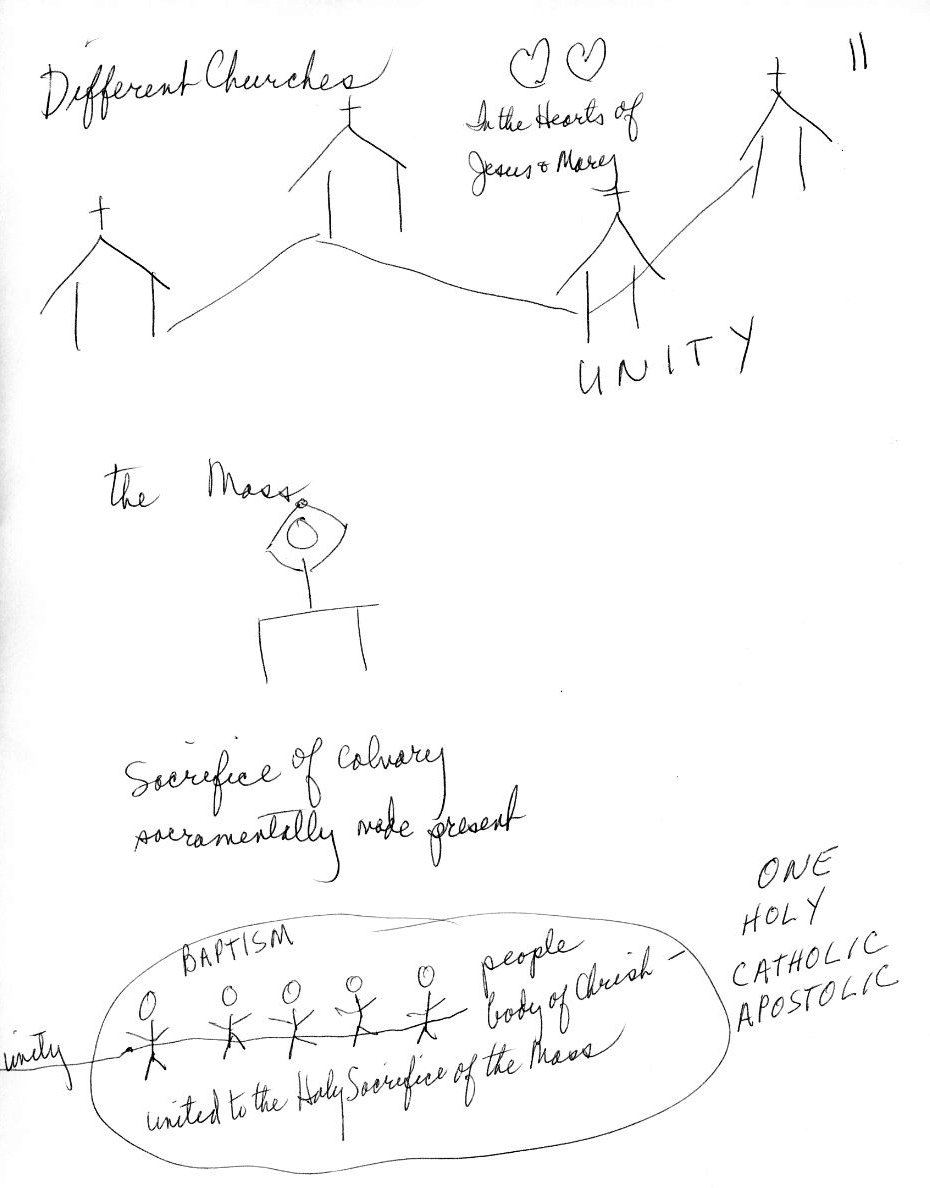 Different Churches
In the Hearts of
Jesus & Mary
11
UNITY
the Mass
Sacrifice of Calvary
sacramentally made present
ONE
HOLY
CATHOLIC
APOSTOLIC
BAPTISM
people
body of Christ -
unity
united to the Holy Sacrifice of the Mass